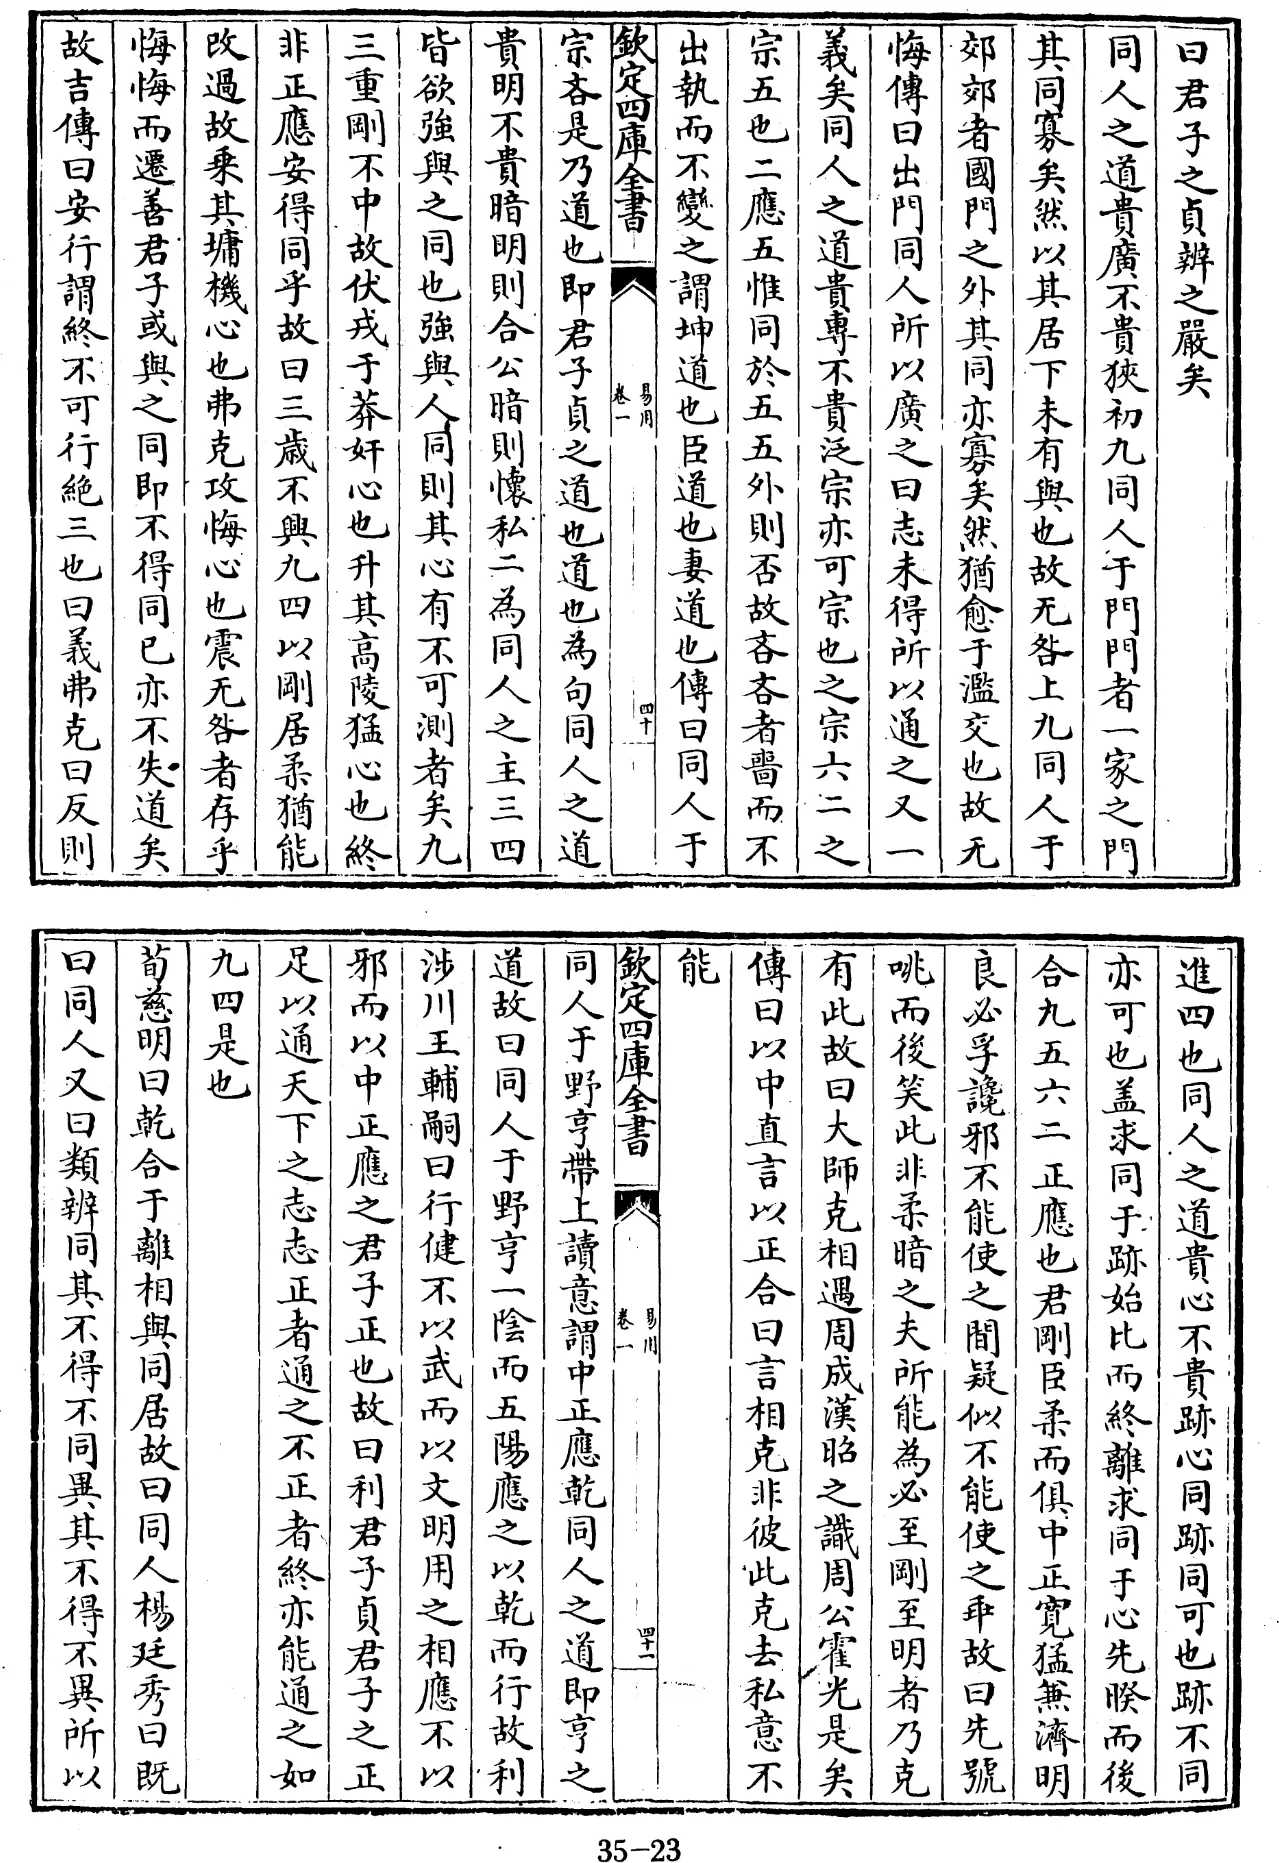 曰君子之貞辨之嚴矣
同人之道貴廣不貴狹初九同人于門門者一家之門
其同寡矣然以其居下未有與也故无咎上九同人于
郊郊者國門之外其同亦寡矣然猶愈于濫交也故无
悔傳曰出門同人所以廣之曰志未得所以通之又一
義矣同人之道貴專不貴泛宗亦可宗也之宗六二之
宗五也二應五惟同於五五外則否故吝吝者嗇而不
出執而不變之謂坤道也臣道也妻道也傳曰同人于
欽定四庫全書
易用
卷一
四十
宗吝是乃道也即君子貞之道也道也為句同人之道
貴明不貴暗明則合公暗則懷私二為同人之主三四
皆欲強與之同也強與人同則其心有不可測者矣九
三重剛不中故伏戎于莽奸心也升其高陵猛心也終
非正應安得同乎故曰三歲不興九四以剛居柔猶能
改過故乘其墉機心也弗克攻悔心也震无咎者存乎
悔悔而遷善君子或與之同即不得同已亦不失道矣
故吉傳曰安行謂終不可行絕三也曰義弗克曰反則
進四也同人之道貴心不貴跡心同跡同可也跡不同
亦可也盖求同于跡始比而終離求同于心先暌而後
合九五六二正應也君剛臣柔而俱中正寛猛兼濟明
良必孚讒邪不能使之間疑似不能使之乖故曰先號
咷而後笑此非柔暗之夫所能為必至剛至明者乃克
有此故曰大師克相遇周成漢昭之識周公霍光是矣
傳曰以中直言以正合曰言相克非彼此克去私意不
能
欽定四庫全書
易用
卷一
四十一
同人于野亨帶上讀意謂中正應乾同人之道即亨之
道故曰同人于野亨一陰而五陽應之以乾而行故利
涉川王輔嗣曰行健不以武而以文明用之相應不以
邪而以中正應之君子正也故曰利君子貞君子之正
足以通天下之志志正者通之不正者終亦能通之如
九四是也
荀慈明曰乾合于離相與同居故曰同人楊廷秀曰既
曰同人又曰類辨同其不得不同異其不得不異所以
35-23